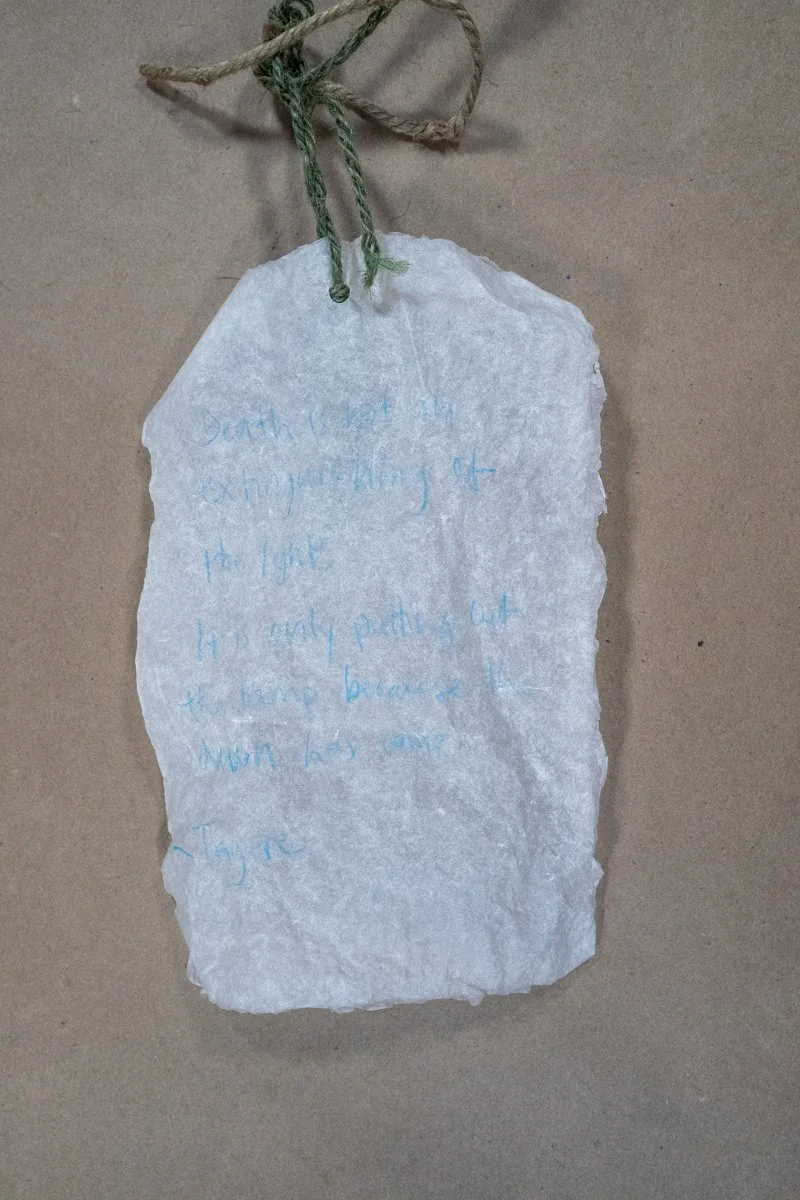 Death is not an
extinguishing of
the light
It is only putting out
the lamp because the
dawn has come.
~Tagore